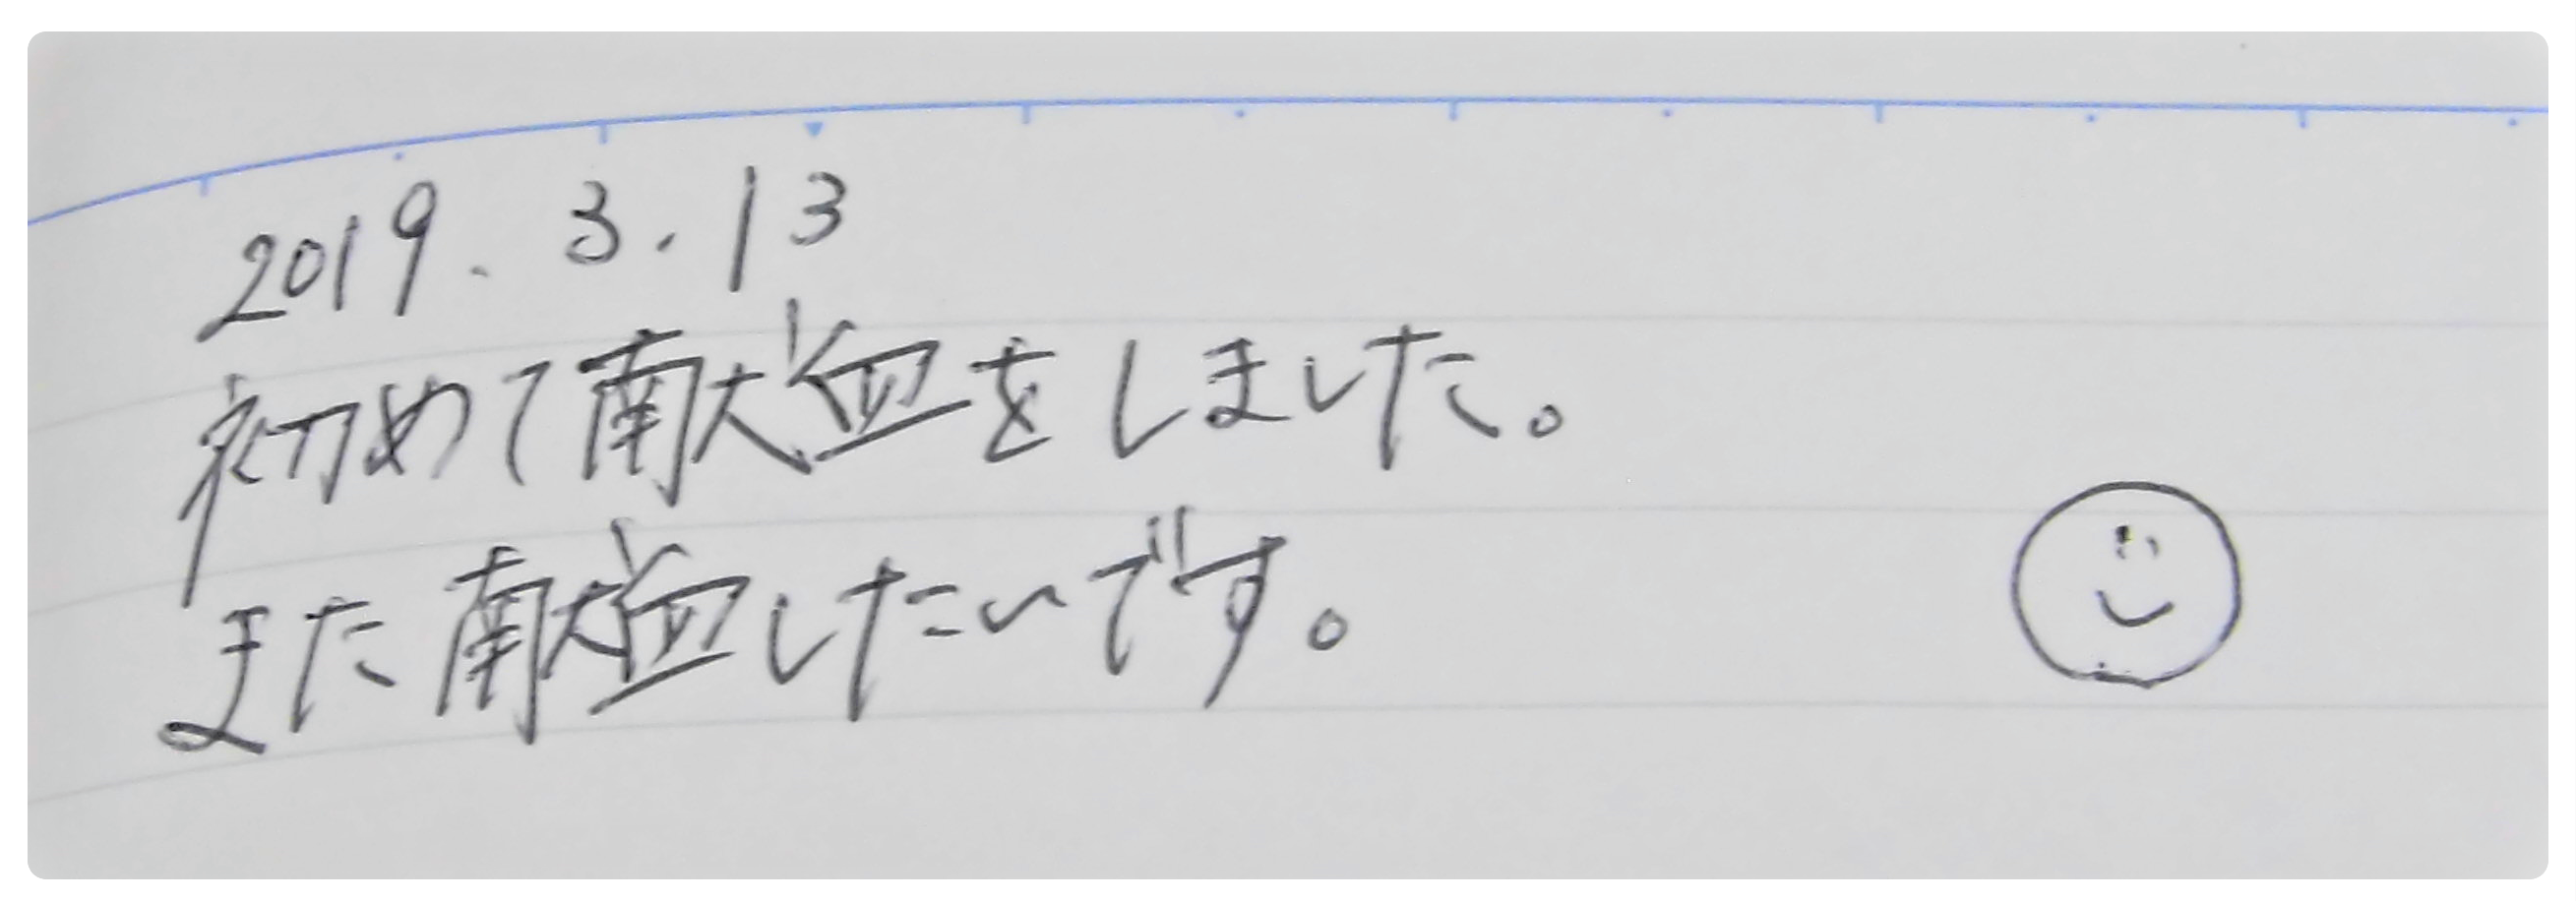 2019. 3. 13
初めて献血をしました。
また献血したいです。